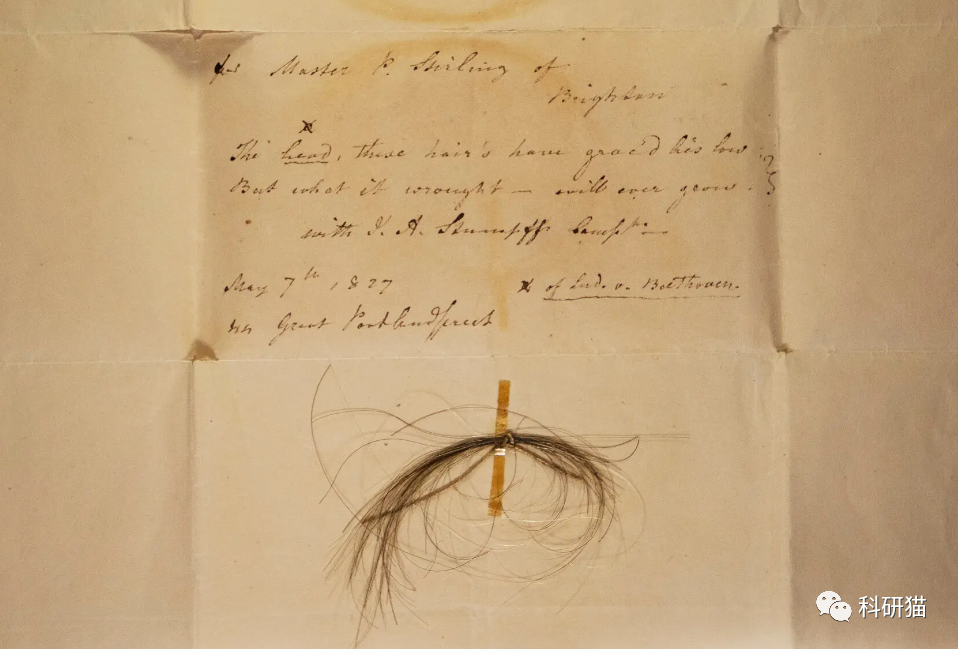 for Master P. Stirling of
Brighton
x
The head, these hair's have grac'd lies low
But what it wrought — will ever grow.
with J. A. Stumpff's
May 7th, 1827
x of Lud. v. Beethoven.
Great Portland street
科研猫